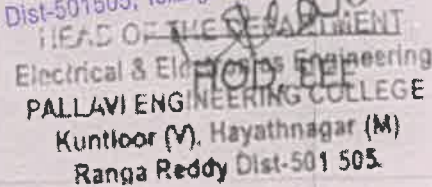 Dist-501505,
HEAD OF THE DEPARTMENT
Electrical & Engineering
HOD, EEE
PALLAVI ENGINEERING COLLEGE
Kuntloor (V), Hayathnagar (M)
Ranga Reddy Dist-501 505.